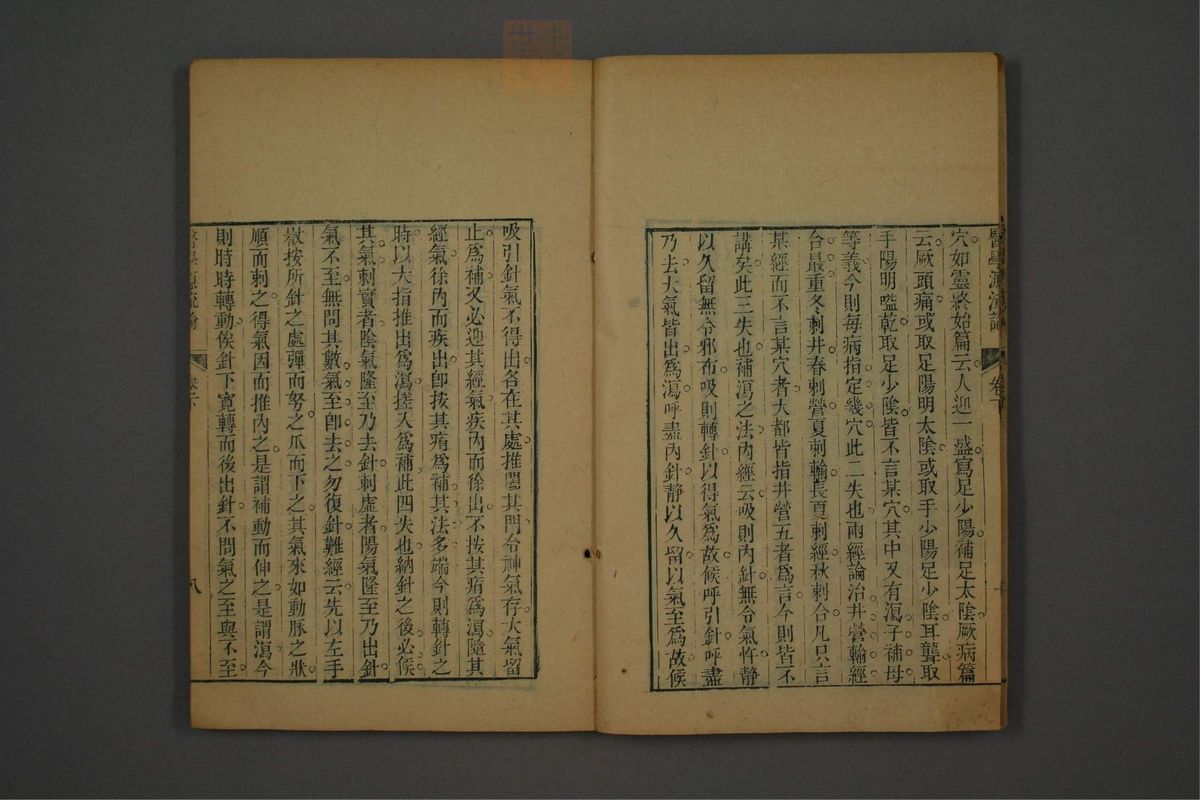 醫學源流論 卷下
穴如靈終始篇云人迎一盛寫足少陽補足太陰厥病篇
云厥頭痛或取足陽明太陰或取手少陽足少陰耳聾取
手陽明嗌乾取足少陰皆不言某穴其中又有瀉子補母
等義今則每病指定幾穴此二失也兩經論治井營輸經
合最重冬刺井春刺營夏刺輸長夏刺經秋刺合凡只言
某經而不言某穴者大都皆指井營五者為言今則皆不
講矣此三失也補瀉之法內經云吸則內針無令氣忤靜
以久留無令邪布吸則轉針以得氣為故候呼引針呼盡
乃去大氣皆出為瀉呼盡內針靜以久留以氣至為故候
吸引針氣不得出各在其處推闔其門令神氣存大氣留
止為補又必迎其經氣疾內而徐出不按其痏為瀉隨其
經氣徐內而疾出卽按其痏為補其法多端今則轉針之
時以大指推出為瀉搓入為補此四失也納針之後必候
其氣刺實者陰氣隆至乃去針刺虛者陽氣隆至乃出針
氣不至無問其數氣至卽去之勿復針難經云先以左手
壓按所針之處彈而努之爪而下之其氣來如動脉之狀
順而刺之得氣因而推內之是謂補動而伸之是謂瀉今
則時時轉動俟針下寬轉而後出針不問氣之至與不至
醫學源流論 卷下 八